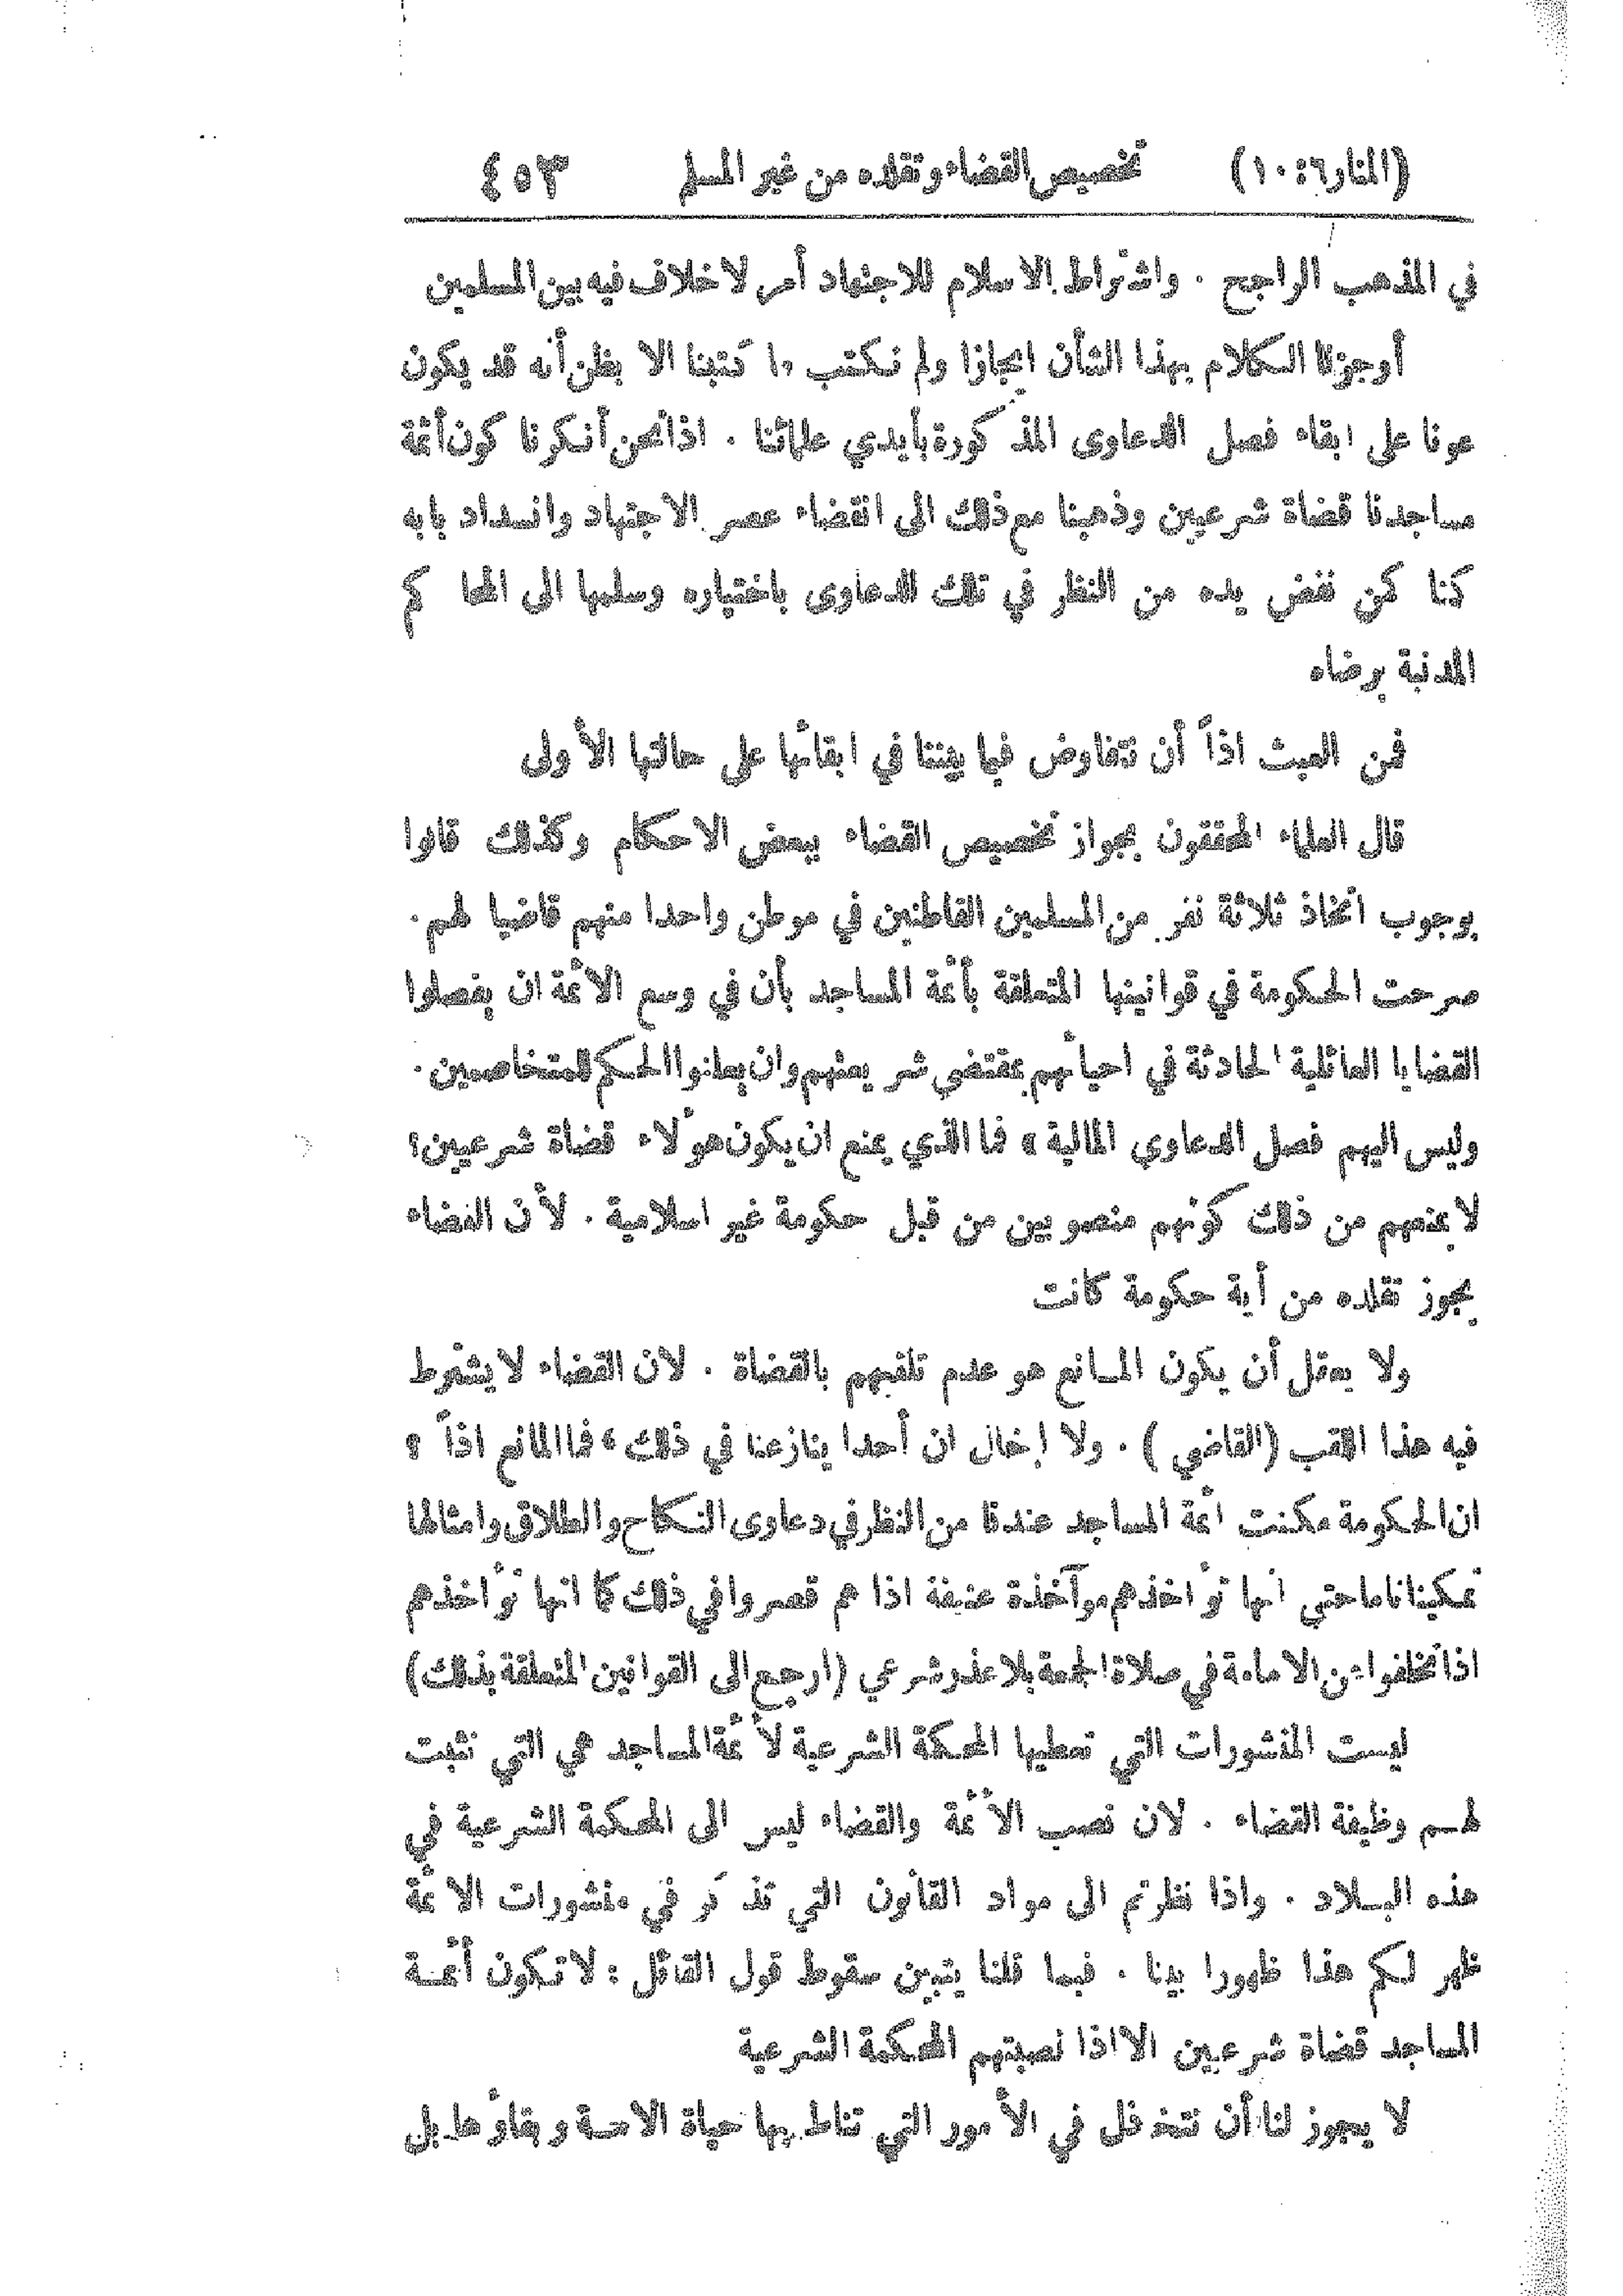 (المنار٦:١٠) تخصيص القضاء وتقلده من غير المسلم ٤٥٣
في المذهب الراجح . واشتراط الاسلام للاجتهاد أمر لا خلاف فيه بين المسلمين
أوجزنا الكلام بهذا الشأن ايجازا ولم نكتب ما كتبنا الا بظن أنه قد يكون
عونا على ابقاء فصل الدعاوى المذكورة بأيدي علمائنا . اذا نحن أنكرنا كون أئمة
مساجدنا قضاة شرعيين وذهبنا مع ذلك الى انقضاء عصر الاجتهاد وانسداد بابه
كنا كمن نفض يده من النظر في تلك الدعاوى باختياره وسلمها الى المحاكم
المدنية برضاه
فمن العبث اذاً أن نتفاوض فيما بيننا في ابقائها على حالتها الأولى
قال العلماء المحققون بجواز تخصيص القضاء ببعض الاحكام وكذلك قالوا
بوجوب اتخاذ ثلاثة نفر من المسلمين القاطنين في موطن واحدا منهم قاضيا لهم .
صرحت الحكومة في قوانينها المتعلقة بأئمة المساجد بأن في وسع الائمة ان يفصلوا
القضايا العائلية الحادثة في احيائهم بمقتضى شريعتهم وان يعلنوا الحكم للمتخاصمين .
وليس اليهم فصل الدعاوي المالية » فما الذي يمنع ان يكون هؤلاء قضاة شرعيين؟
لا يمنعهم من ذلك كونهم منصوبين من قبل حكومة غير اسلامية . لأن القضاء
يجوز تقلده من أية حكومة كانت
ولا يعقل أن يكون المانع هو عدم تلقبهم بالقضاة . لان القضاء لا يشترط
فيه هذا اللقب (القاضي) . ولا إخال ان أحدا ينازعنا في ذلك ، فما المانع اذاً ؟
ان الحكومة مكنت ائمة المساجد عندنا من النظر في دعاوى النكاح والطلاق وامثالها
تمكينا تاما حتى انها تؤاخذهم موآخذة عنيفة اذا هم قصروا في ذلك كما انها تؤاخذهم
اذا تخلفوا عن الامامة في صلاة الجمعة بلا عذر شرعي (ارجع الى القوانين المتعلقة بذلك)
ليست المنشورات التي تعطيها المحكمة الشرعية لأئمة المساجد هي التي تثبت
لهم وظيفة القضاء . لان نصب الأئمة والقضاء ليس الى المحكمة الشرعية في
هذه البلاد . واذا نظرتم الى مواد القانون التي تذكر في منشورات الائمة
ظهر لكم هذا ظهورا بينا . فبما قلنا يتبين سقوط قول القائل : لا تكون أئمة
المساجد قضاة شرعيين الا اذا نصبتهم المحكمة الشرعية
لا يجوز لنا أن نتغفل في الأمور التي تناط بها حياة الامة وبقاؤها بل